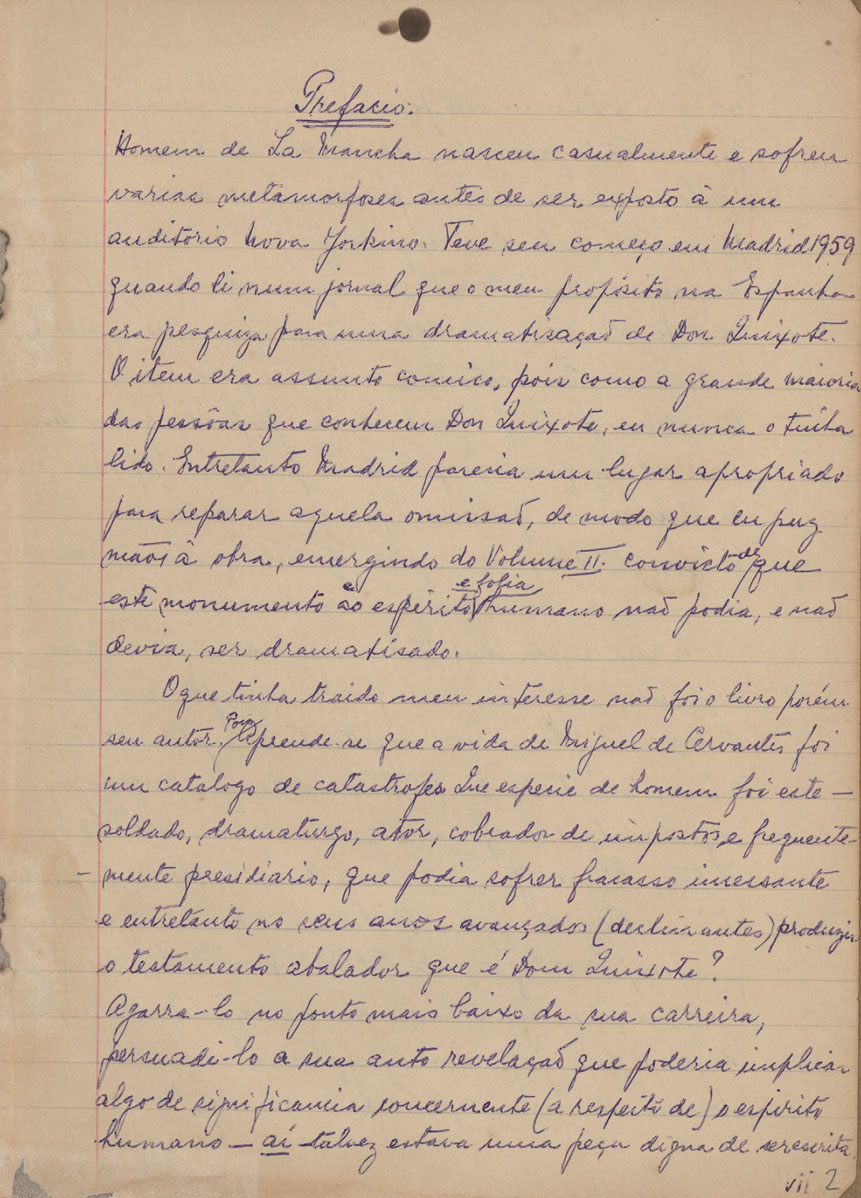 Prefacio.
Homem de La Mancha nasceu casualmente e sofreu
varias metamorfoses antes de ser exposto à um
auditório Nova Yorkino. Teve seu começo em Madrid 1959
quando li num jornal que o meu propósito na Espanha
era pesquiza para uma dramatisação de Don Quixote.
O item era assunto comico, pois como a grande maioria
das pessôas que conhecem Don Quixote, eu nunca o tinha
lido. Entretanto Madrid parecia um lugar apropriado
para reparar aquela omissaõ, de modo que eu puz
maõs à obra, emergindo do Volume II. convicto de que
este monumento ao espírito e sofia humano naõ podia, e naõ
devia, ser dramatisado.
O que tinha traido meu interesse naõ foi o livro porém
seu autor. Pois aprende-se que a vida de Miguel de Cervantes foi
um catalogo de catastrofes Que especie de homem foi este —
soldado, dramaturgo, ator, cobrador de impostos, e frequente-
-mente presidiario, que podia sofrer fracasso incessante
e entretanto no seus anos avançados (declinantes) produzir
o testamento abalador que é Dom Quixote?
Agarra-lo no ponto mais baixo da sua carreira,
persuadi-lo a sua auto revelaçaõ que poderia implicar
algo de significancia concernente (a respeito de) o espirito
humano — aí talvez estava uma peça digna de ser escrita.
vii 2